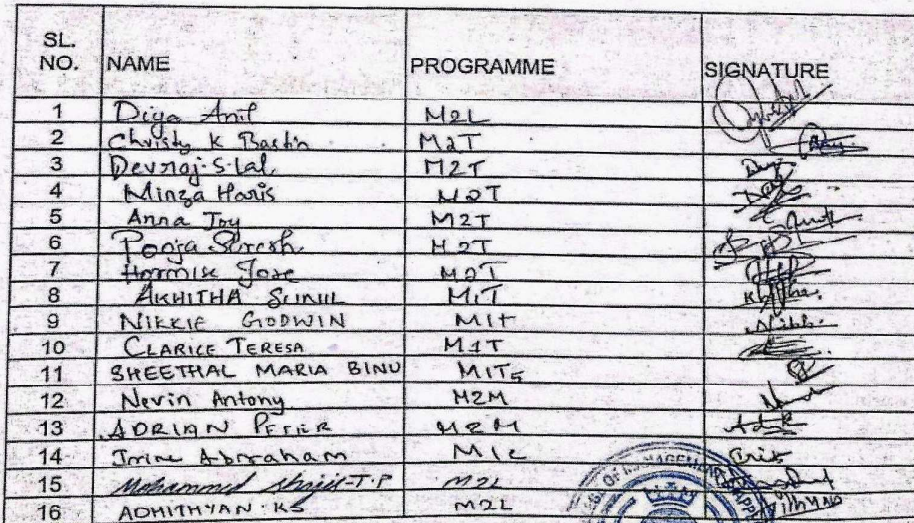 SL. NO. NAME PROGRAMME SIGNATURE
1 Diya Anil M2L
2 Christy K Bastin M2T
3 Devraj-S-Lal M2T
4 Minza Haris M2T
5 Anna Joy M2T
6 Pooja Suresh M2T
7 Hormis Jose M2T
8 AKHITHA SUNIL M1T
9 NIKKIE GODWIN M1T
10 CLARICE TERESA M1T
11 SHEETHAL MARIA BINU M1T5
12 Nevin Antony M2M
13 ADRIAN PETER M2M
14 Irine Abraham M1L
15 Mohammed T.P M2L
16 ADHITHYAN KS M2L
OF MANAGEMENT